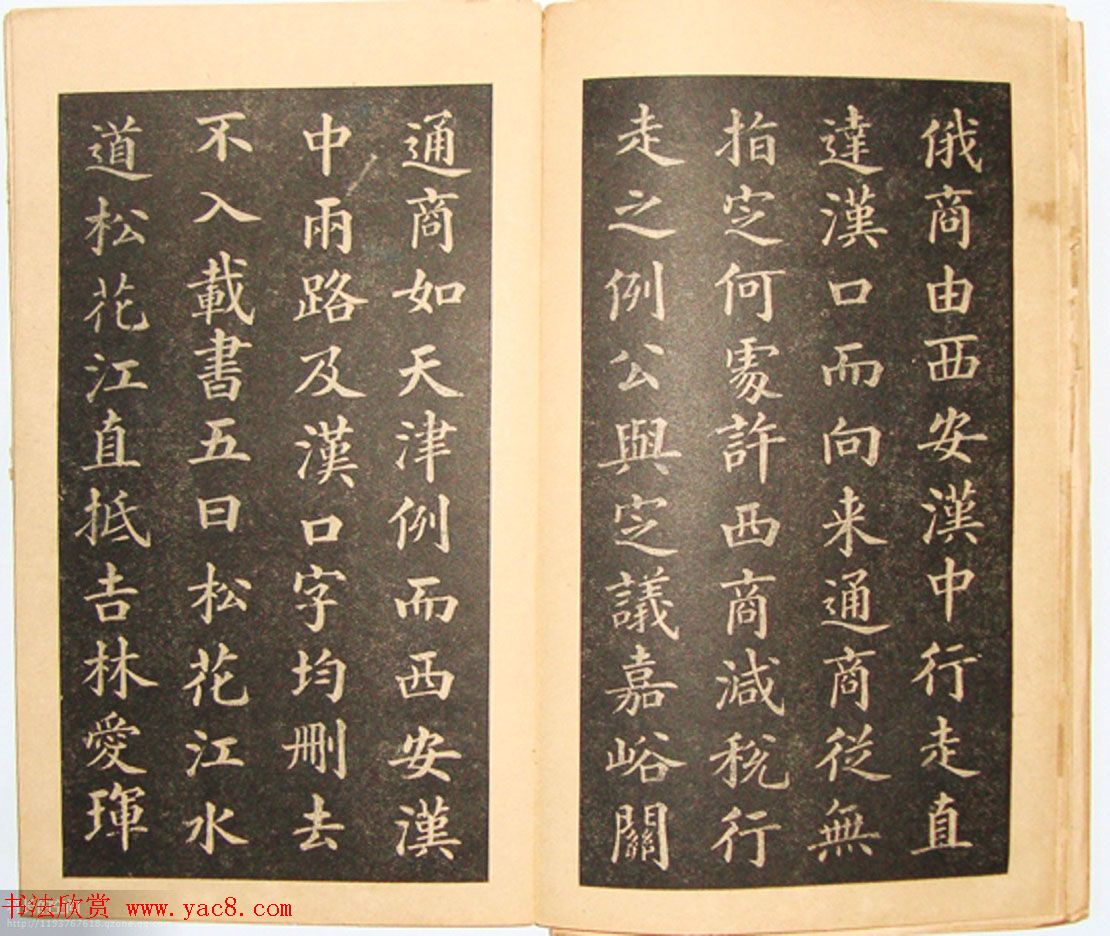 俄商由西安漢中行走直
達漢口而向来通商從無
指定何處許西商減稅行
走之例公與定議嘉峪關
通商如天津例而西安漢
中兩路及漢口字均刪去
不入載書五曰松花江水
道松花江直抵吉林愛琿
书法欣赏 www.yac8.com